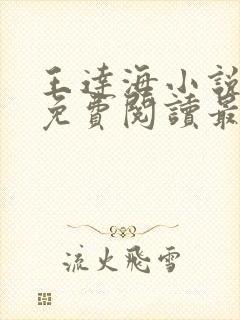 王達海小說
免費閱讀最
流火飛雪